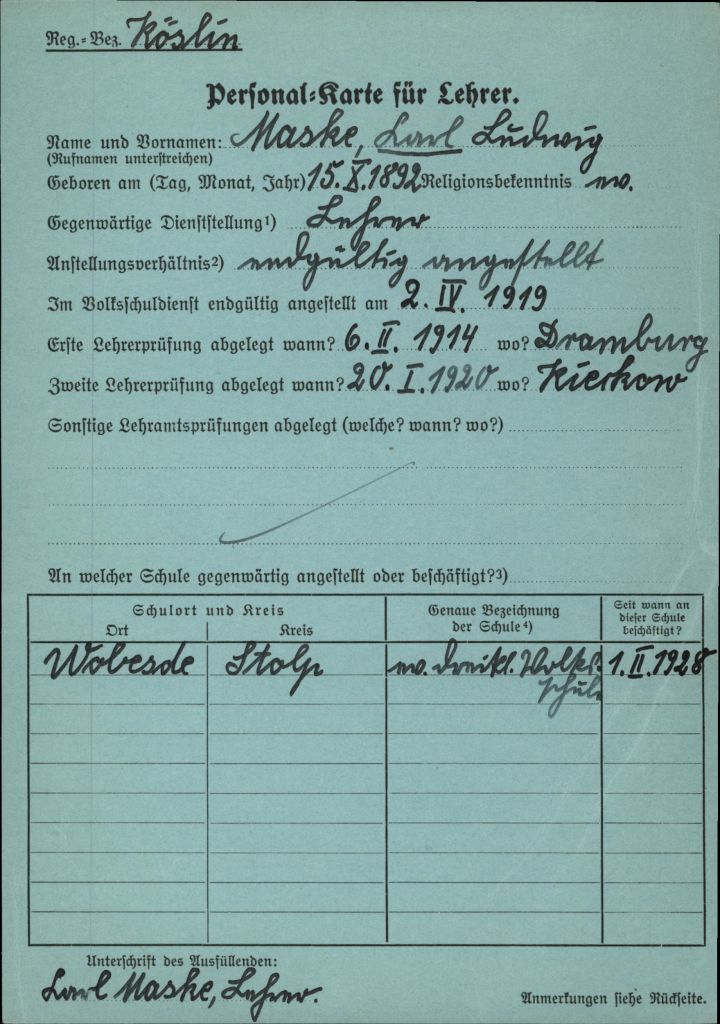 Reg.-Bez. Köslin
Personal-Karte für Lehrer.
Name und Vornamen: Maske, Karl Ludwig
(Rufnamen unterstreichen)
Geboren am (Tag, Monat, Jahr) 15. X. 1892 Religionsbekenntnis ev.
Gegenwärtige Dienststellung¹) Lehrer
Anstellungsverhältnis²) endgültig angestellt
Im Volksschuldienst endgültig angestellt am 2. IV. 1919
Erste Lehrerprüfung abgelegt wann? 6. II. 1914 wo? Dramburg
Zweite Lehrerprüfung abgelegt wann? 20. I. 1920 wo? Kierkow
Sonstige Lehramtsprüfungen abgelegt (welche? wann? wo?)
An welcher Schule gegenwärtig angestellt oder beschäftigt?³)
Schulort und Kreis
Ort Kreis
Genaue Bezeichnung
der Schule⁴)
Seit wann an
dieser Schule
beschäftigt?
Wobesde Stolp ev. dreikl. Volks- 1. II. 1928
schule
Unterschrift des Ausfüllenden:
Karl Maske, Lehrer.
Anmerkungen siehe Rückseite.